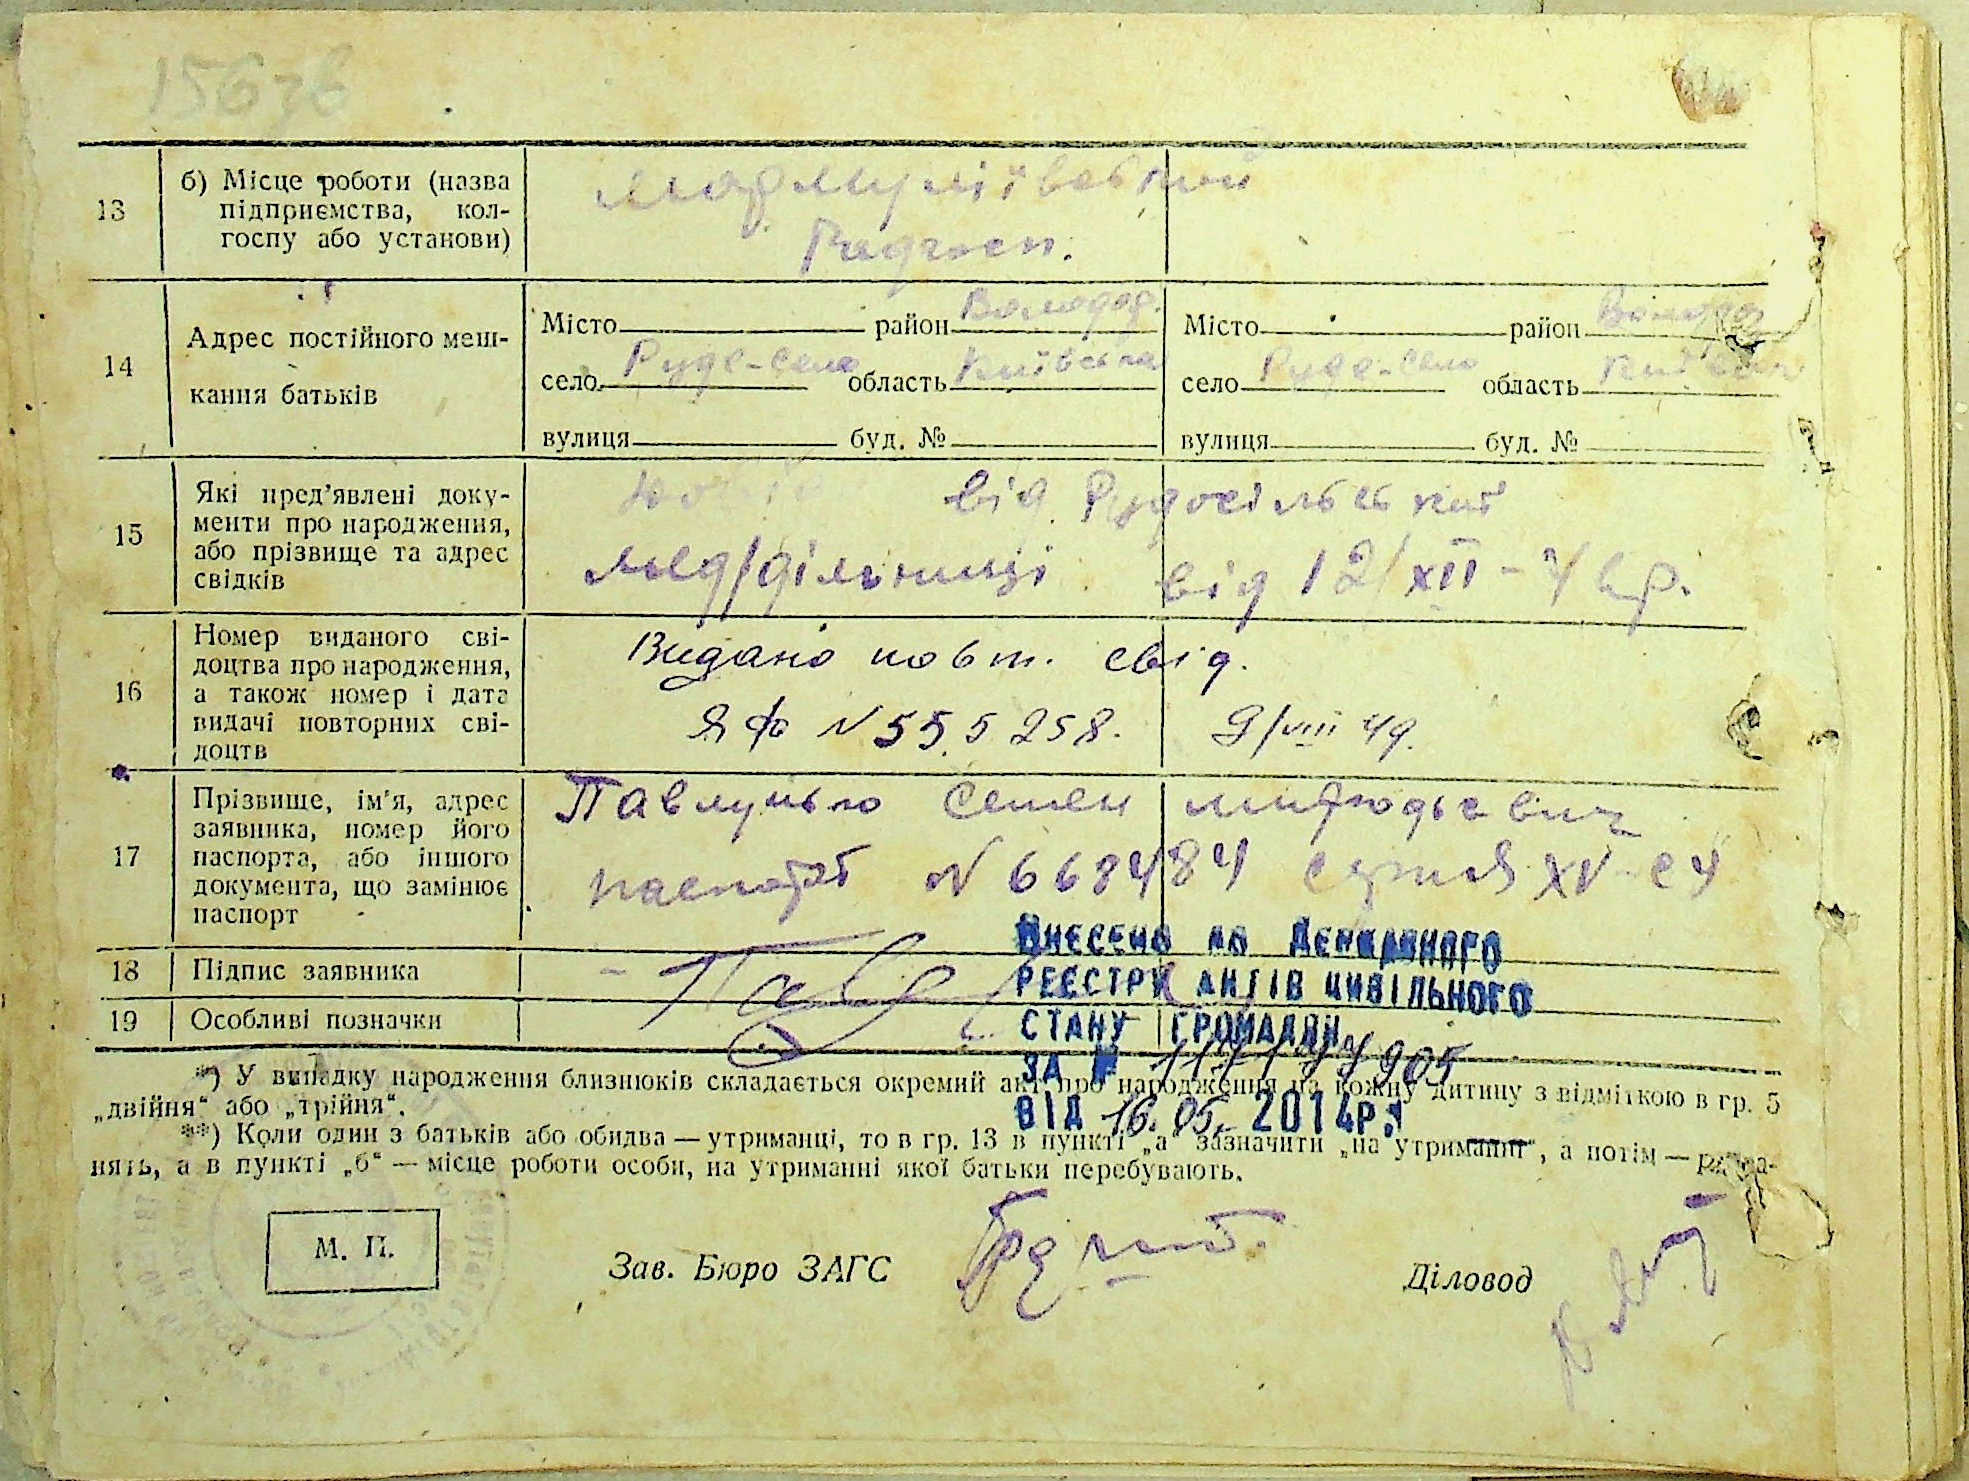 13
б) Місце роботи (назва
підприємства, кол-
госпу або установи)
Радгосп.
14
Адрес постійного меш-
кання батьків
Місто район Володар. Місто район Володар
село Руде-Село область Київська село Руде-Село область Київська
вулиця буд. № вулиця буд. №
15
Які пред'явлені доку-
менти про народження,
або прізвище та адрес
свідків
від Рудосільської
мед/дільниці від 12/XII-
16
Номер виданого сві-
доцтва про народження,
а також номер і дата
видачі повторних сві-
доцтв
Видано повт. свід.
ЯФ N 555258. 9/VIII 49.
17
Прізвище, ім'я, адрес
заявника, номер його
паспорта, або іншого
документа, що замінює
паспорт
Семен
паспорт N серия XV
18 Підпис заявника
19 Особливі позначки
ВНЕСЕНО ДО ДЕРЖАВНОГО
РЕЄСТРУ АКТІВ ЦИВІЛЬНОГО
СТАНУ ГРОМАДЯН
ЗА №
ВІД 16.05. 2014р.
*) У випадку народження близнюків складається окремий акт про народження на кожну дитину з відміткою в гр. 5
„двійня“ або „трійня“.
**) Коли один з батьків або обидва — утриманці, то в гр. 13 в пункті „а“ зазначити „на утриманні“, а потім —
нять, а в пункті „б“ — місце роботи особи, на утриманні якої батьки перебувають.
М. П.
Зав. Бюро ЗАГС
Діловод